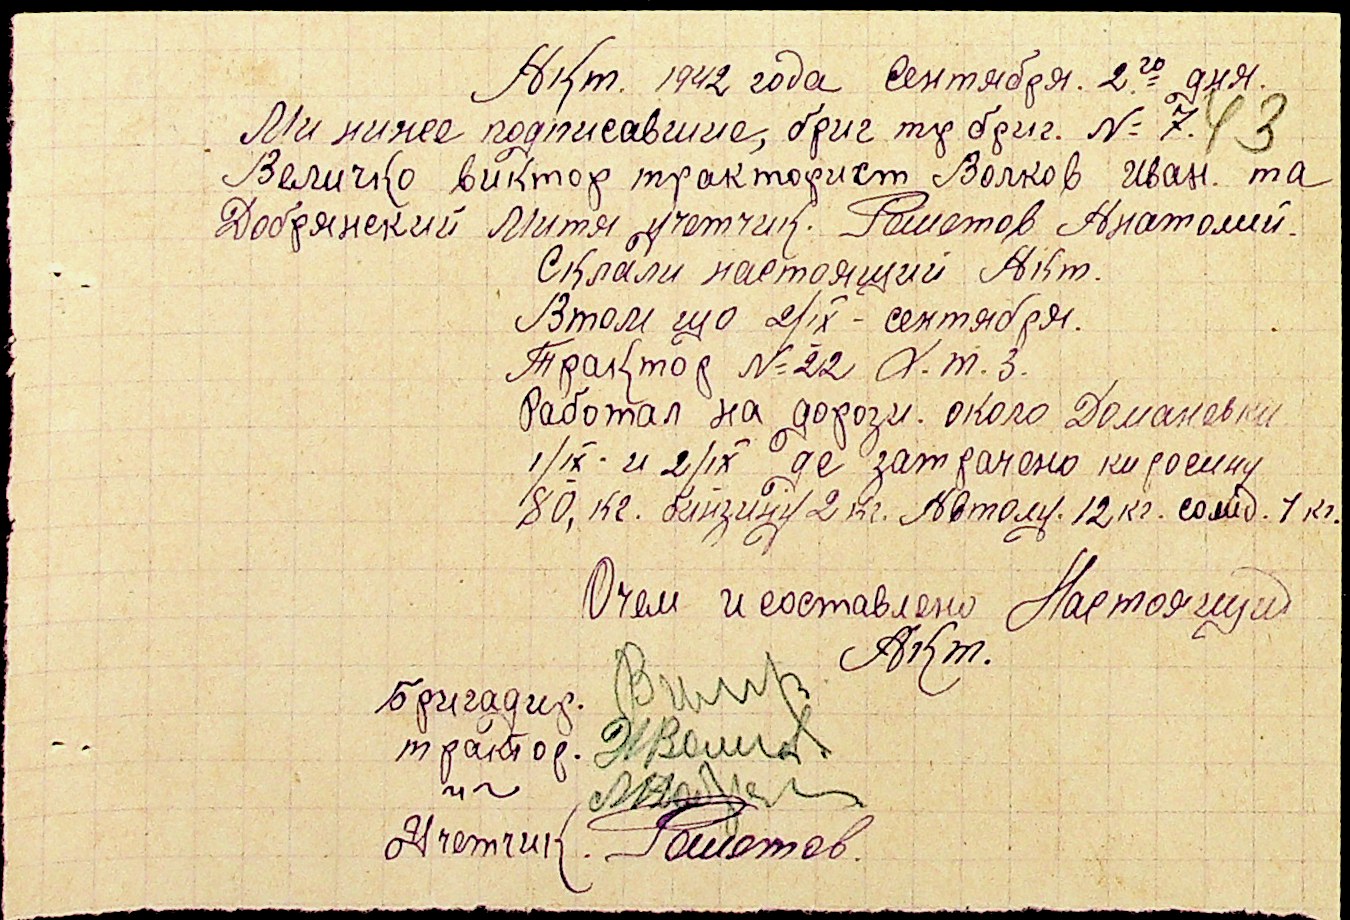 Акт. 1942 года Сентября. 2го дня.
Ми ниже подписавшие, бриг тр бриг. № 7. 43
Величко виктор тракторист Волков Иван. та
Добрянский Митя учетчик. Рашетов Анатолий.
Склали настоящий Акт.
Втом що 2/IX - сентября.
Трактор № 22 Х.Т.З.
Работал на дорози. около Домановки
1/IX - и 2/IX де затрачено киросину
80, кг. бинзину 2 кг. Автолу. 12 кг. солид. 1 кг.
Очем и составлено Настоящий
Акт.
Бригадир.
трактор. ИВолков
-„-
Учетчик. Рашетов.